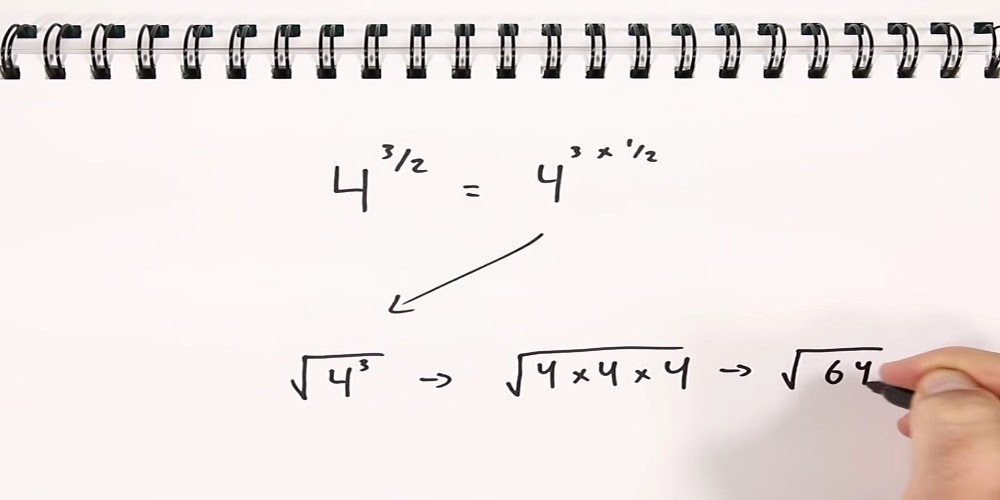 4^3/2 = 4^3 × 1/2
√4^3 → √4×4×4 → √64